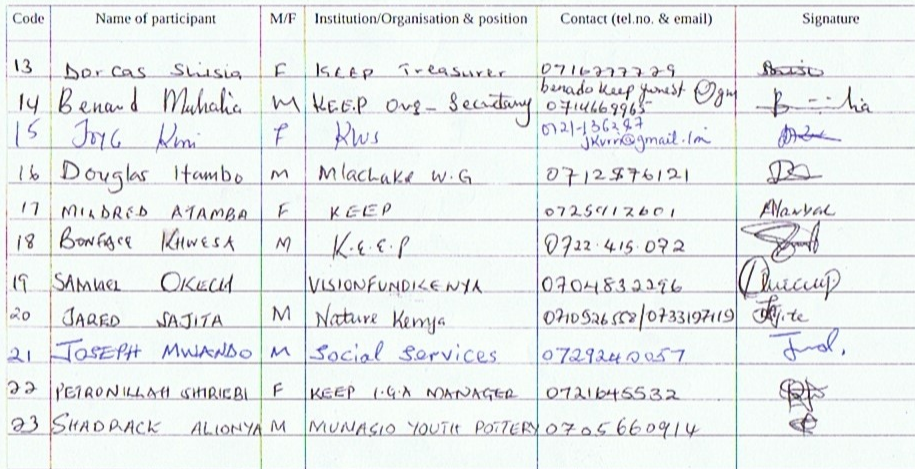 Code Name of participant M/F Institution/Organisation & position Contact (tel.no. & email) Signature
13 Dorcas Shisia F KEEP Treasurer 0716277729
benadokeep
14 Benard Muhalia M KEEP Org- Secretary 0714669965
15 F KWS
16 Douglas Itambo M Mlachake W.G 0712876121
17 MILDRED ATAMBA F KEEP 0725912601
18 BONFACE KHWESA M K.E.E.P 0722.415.072
19 SAMUEL OKECH VISIONFUNDKENYA 0704832296
20 JARED SAJITA M Nature Kenya 0710526558/0733197119
21 JOSEPH MWANDO M Social Services 0729240057
22 PETRONILLAH SHRIEBI F KEEP I.G.A MANAGER 0721645532
23 SHADRACK ALIONYA M MUNASIO YOUTH POTTERY 0705660914